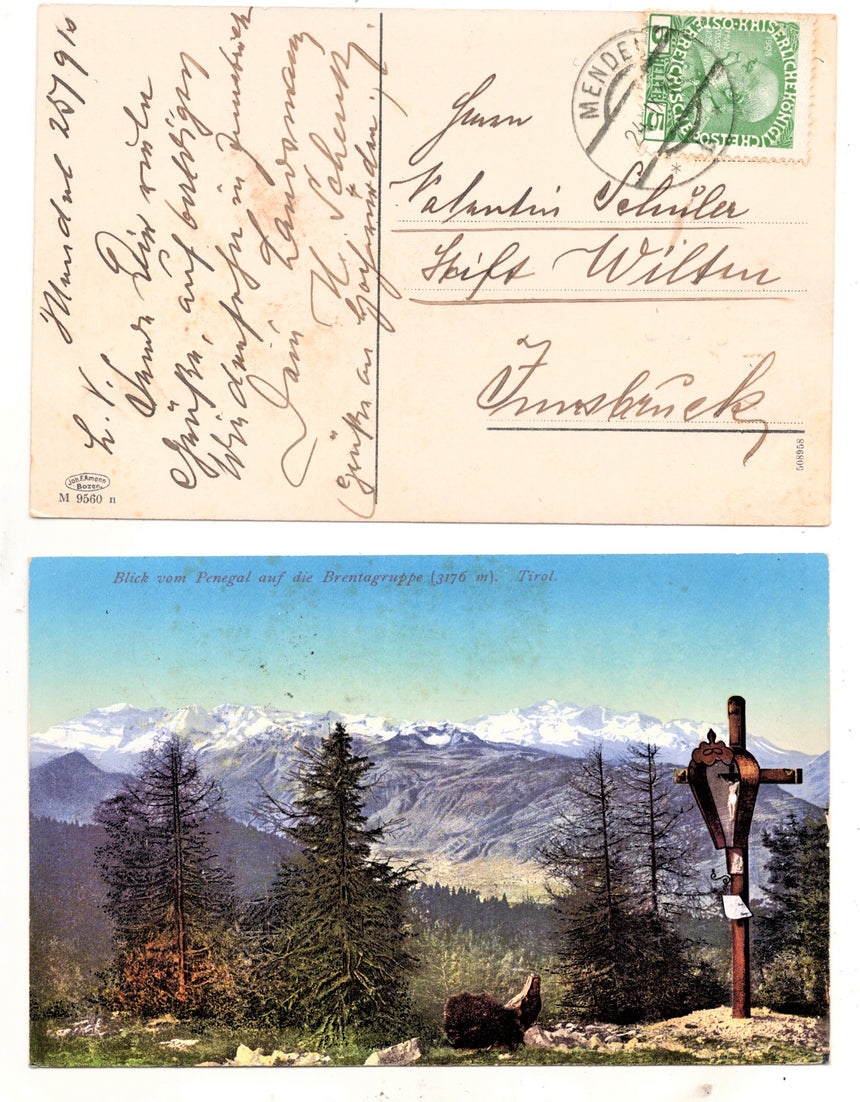 Mendel 25/9 10
L. V.
Sende Dir viele
Grüße, auf baldiges
Wiedersehn in Innsbruck
Dein Landsmann
H. Schenk
(Grüße an Hochwürden.)
Joh. F. Amonn
Bozen.
M 9560 n
MENDEL
24
KAISERLICHE KÖNIGLICHE
ÖSTERREICHISCHE
5 HELLER 5
Herrn
Valentin Schuler
Stift Wilten
Innsbruck
508958
Blick vom Penegal auf die Brentagruppe (3176 m). Tirol.